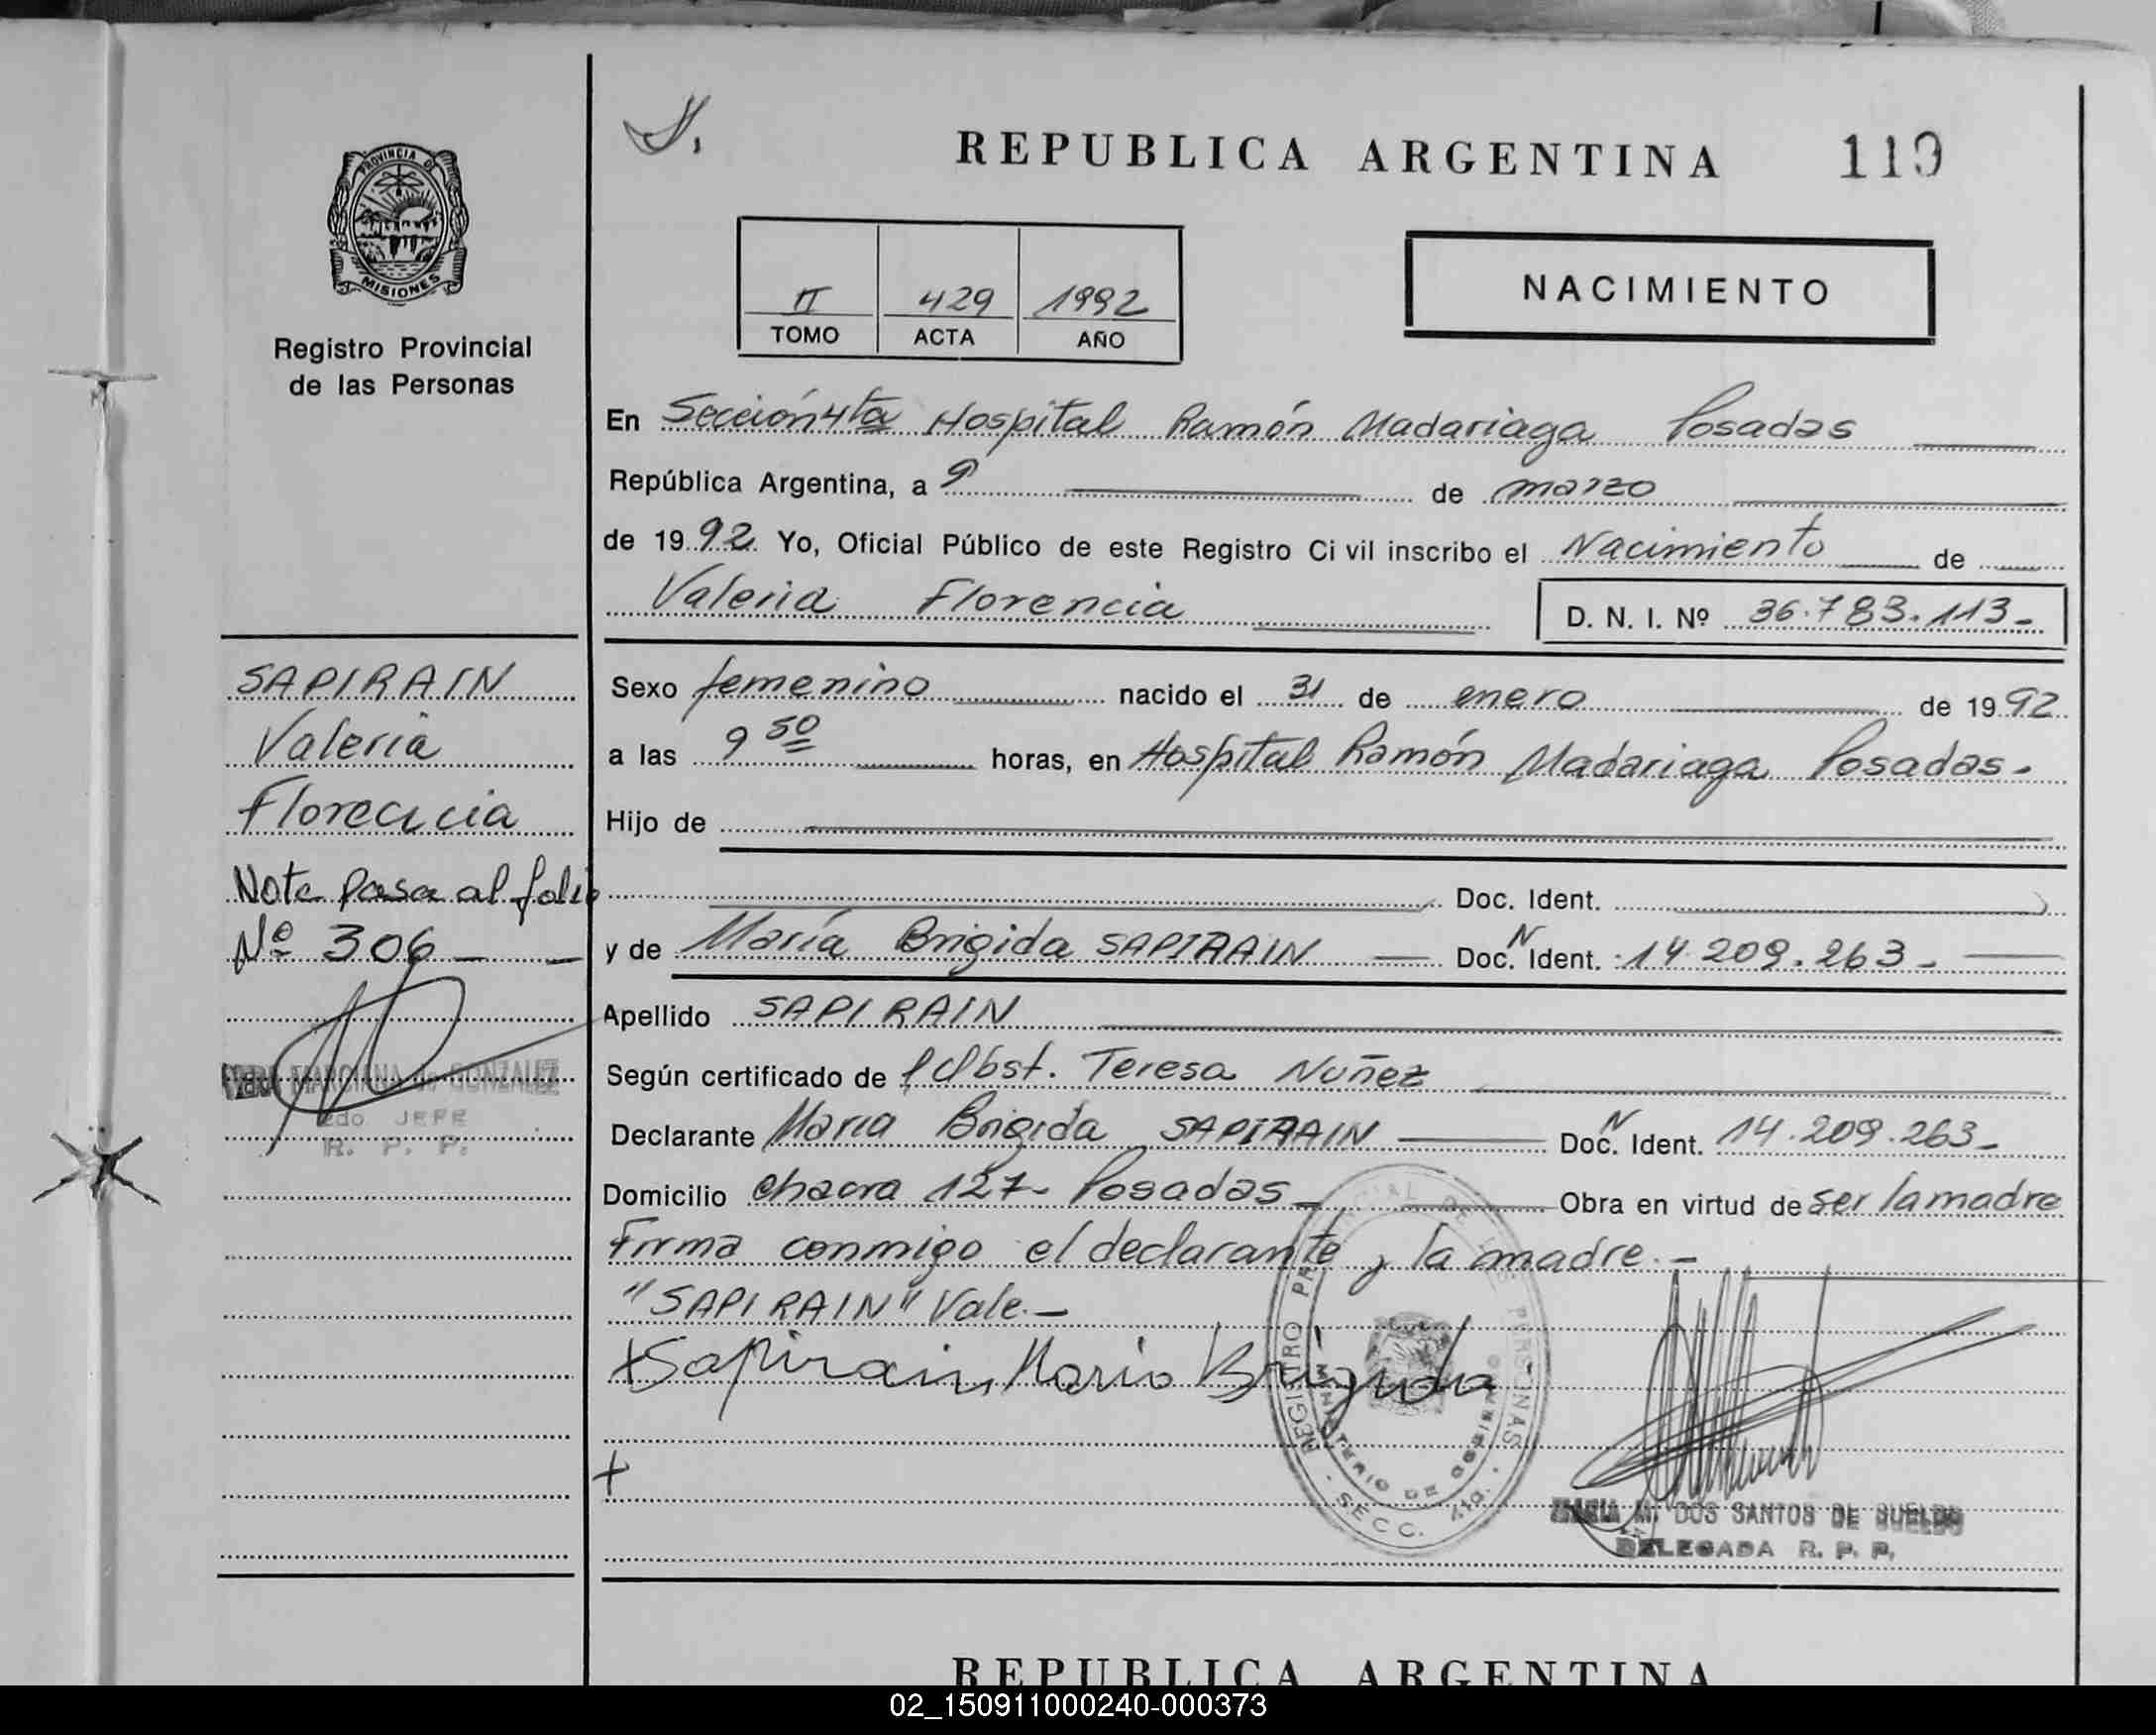 PROVINCIA DE
MISIONES
Registro Provincial
de las Personas
SAPIRAIN
Valeria
Florencia
Nota pasa al folio
Nº 306 —
MARCIANA de GONZALEZ
2do JEFE
R. P. P.
REPUBLICA ARGENTINA 119
II 429 1992
TOMO ACTA AÑO
NACIMIENTO
En Sección 4ta Hospital Ramón Madariaga Posadas
República Argentina, a 9 de marzo
de 1992 Yo, Oficial Público de este Registro Civil inscribo el Nacimiento de
Valeria Florencia D. N. I. Nº 36.783.113-
Sexo femenino nacido el 31 de enero de 1992
a las 9 50 horas, en Hospital Ramón Madariaga Posadas.
Hijo de
Doc. Ident.
y de María Brigida SAPIRAIN Doc. N Ident. 14.209.263-
Apellido SAPIRAIN
Según certificado de Obst. Teresa Nuñez
Declarante Maria Brigida SAPIRAIN Doc. N Ident. 14.209.263-
Domicilio chacra 127- Posadas- Obra en virtud de ser la madre
Firma conmigo el declarante y la madre.-
"SAPIRAIN" Vale.-
+Sapirain Maria Brigida
+
REGISTRO PROVINCIAL DE LAS PERSONAS
MINISTERIO DE GOBIERNO
SECC. 4ta.
MARIA M. DOS SANTOS DE SUELDO
DELEGADA R. P. P.
REPUBLICA ARGENTINA
02_150911000240-000373